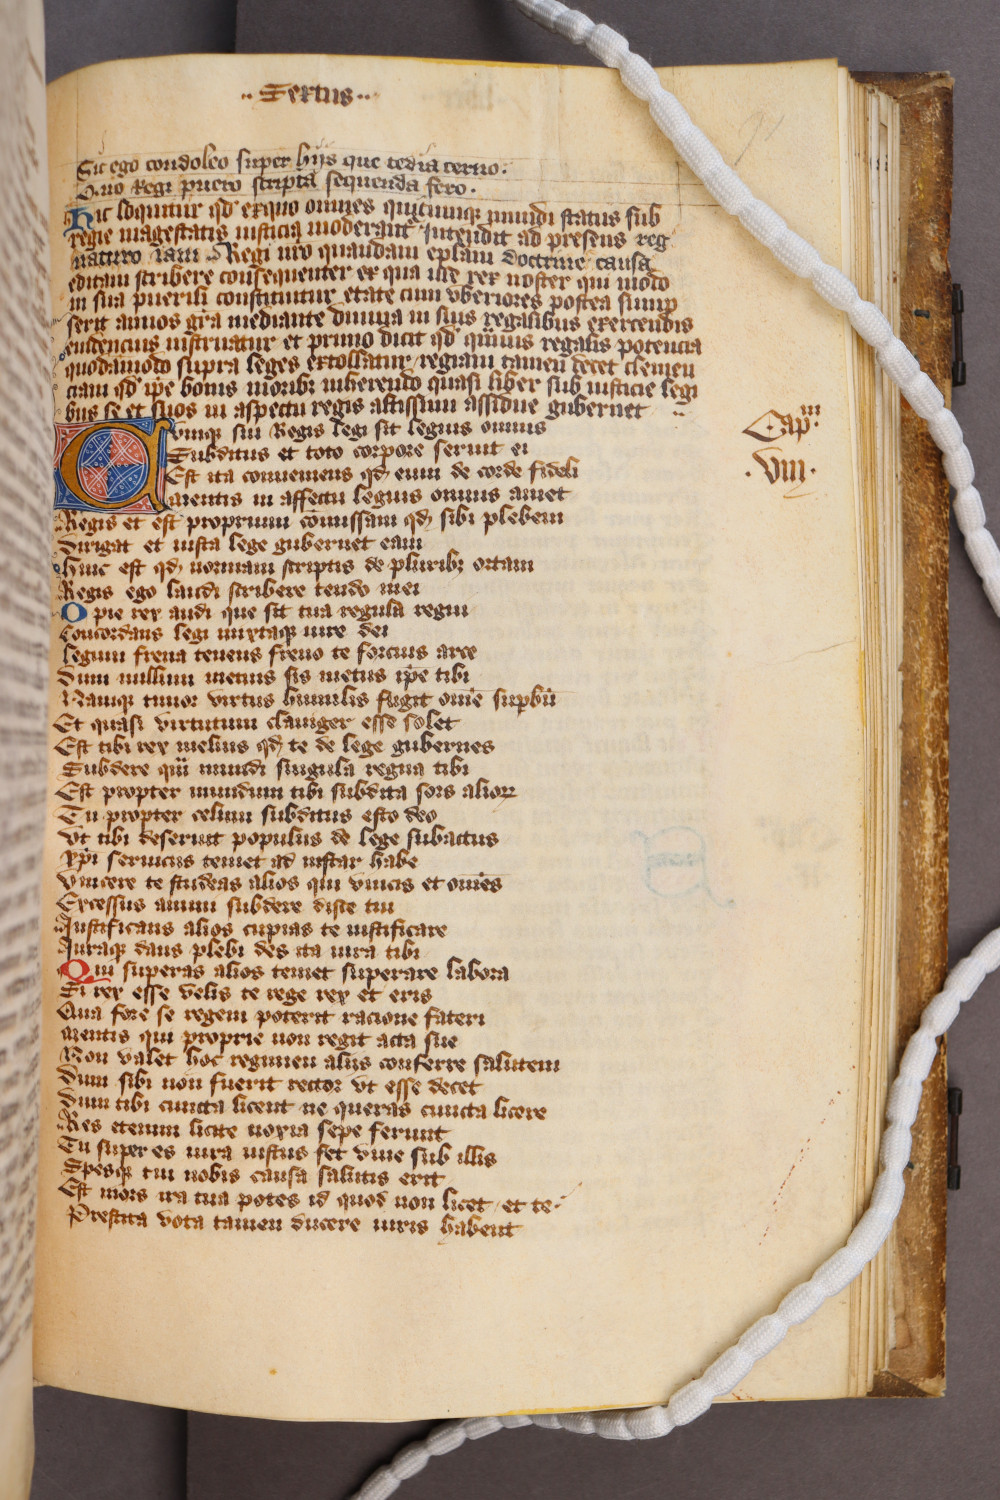 ·· Tercius ··
Sic ego condoleo super hijs que tedia cerno:
Quo Regi puero scripta sequenda fero.
Hic loquitur qd exquo omnes quicumqz mundi status sub
regie magestatis iusticia moderant Intendit ad presens reg
naturo iam Regi nro quandam eplam doctrine causa
editam scribere consequenter ex qua ille rex noster qui modo
in sua puerili constituitur etate cum vberiores postea sump
serit annos gra mediante diuina in suis regalibus exercendis
euidencius instruatur et primo dicit qd quamuis regalis potencia
quodamodo supra leges extollatur regiam tamen decet clemen
ciam qd ipe bonis moribz inherendo quasi liber sub iusticie legi
bus se et suos in aspectu regis altissimi assidue gubernet
Cumqz sui Regis legi sit legius omnis
Subditus et toto corpore seruit ei
Est ita conueniens qd eum de corde fideli
Mentis in affectu legius omnis amet
Regis et est proprium comissam qd sibi plebem
Dirigat et iusta lege gubernet eam
Hinc est qd normam scriptis de pluribz ortam
Regis ego laudi scribere tendo mei
O pie rex audi que sit tua regula regni
Concordans legi mixtaqz iure dei
Legum frena tenens freno te forcius arce
Dum nullum metuis sis metus ipe tibi
Namqz timor virtus humilis fugit omne supbu
Et quasi virtutum clauiger esse solet
Est tibi rex melius qd te de lege gubernes
Subdere qm mundi singula regna tibi
Est propter mundum tibi subdita sors alioꝝ
Tu propter celum subditus esto deo
Vt tibi deseruit populus de lege subactus
Xpi seruiciis temet ad instar habe
Vincere te studeas alios qui vincis et omnes
Excessus animi subdere disce tui
Iustificans alios cupias te iustificare
Iuraqz dans plebi des ita iura tibi
Qui superas alios temet superare labora
Si rex esse velis te rege rex et eris
Qua fore se regem poterit racione fateri
Mentis qui proprie non regit acta sue
Non valet hoc regimen aliis conferre salutem
Dum sibi non fuerit rector vt esse decet
Dum tibi cuncta licent ne queras cuncta licere
Res etenim licite noxia sepe ferunt
Tu super es iura iustus set viue sub illis
Spesqz tui nobis causa salutis erit
Est mors ira tua potes id quod non licet et te
Prestita vota tamen ducere iuris habent
Capm
·VIII·